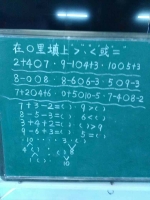 在○里填上">""<"或"="
2+4○7 9-1○4+3 10○5+3
8-0○8 8-6○6-3 5○9-3
7+2○4+6 0+5○10-5 7-4○8-2
7+3-2=( ) 9>( )
8-5-3=( ) 6<( )
3+4+2=( ) ( )>9
9-6+3=( ) 5=( )
10